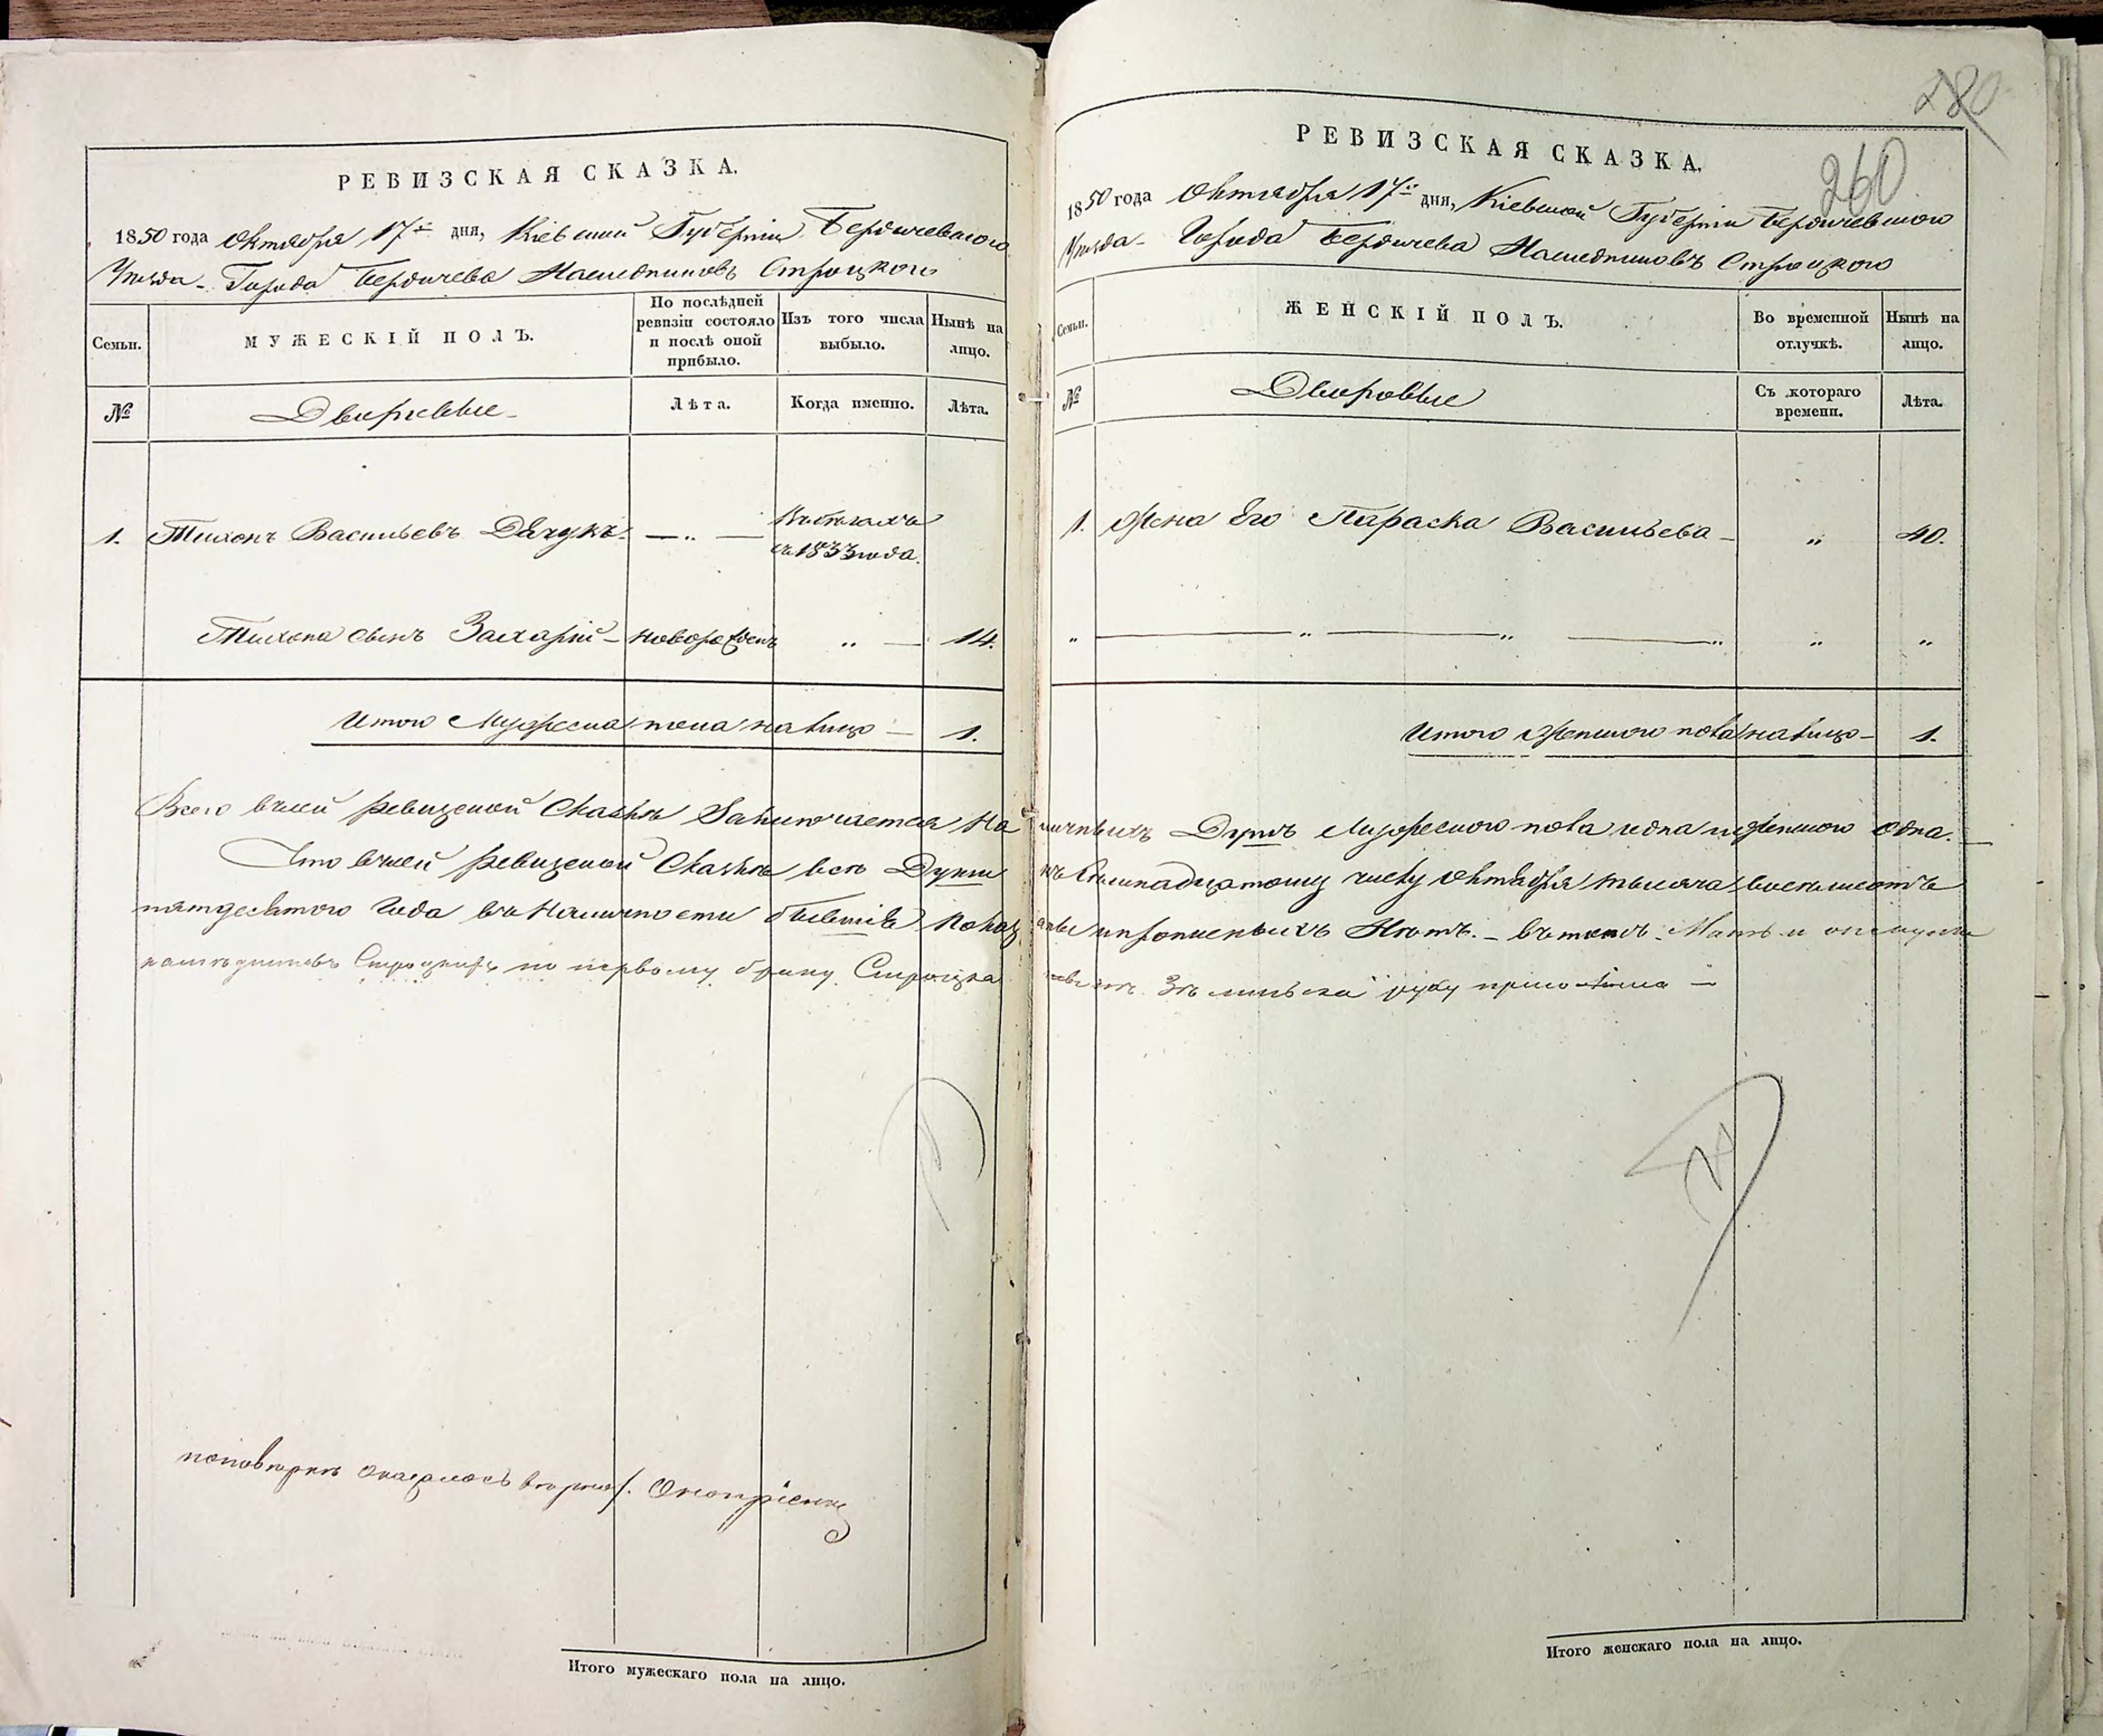 РЕВИЗСКАЯ СКАЗКА.
1850 года Октября 17го дня, Кіевской Губерніи Бердичевского
Уѣзда Города Бердичева Наследниковъ Строцкого
Семьи.
МУЖЕСКІЙ ПОЛЪ.
По послѣдней ревизіи состояло и послѣ оной прибыло.
Изъ того числа выбыло.
Нынѣ на лицо.
№
Дворовые
Лѣта.
Когда именно.
Лѣта.
1. Тихонъ Васильевъ Дячукъ. — „ — Въ бегахъ съ 1833 года.
Тихона сынъ Захарій — новорожденъ „ — 14.
Итого Мужеска пола на лицо — 1.
Всего въ сей ревизской Сказкѣ Заключается на
Что въ сей ревизской Сказкѣ всѣ Души
пятдесятого Года въ Наличности бывшіе показ
наследниковъ по первому браку
по поверке оказалось верно
Итого мужескаго пола на лицо.
280
260
РЕВИЗСКАЯ СКАЗКА.
1850 года Октября 17го дня, Кіевской Губерніи Бердичевского
Уѣзда Города Бердичева Наследниковъ Строцкого
Семьи.
ЖЕНСКІЙ ПОЛЪ.
Во временной отлучкѣ.
Нынѣ на лицо.
№
Дворовые
Съ котораго времени.
Лѣта.
1. Жена Его Параска Васильева — „ 40.
„ — „ — „ — „ „ „
Итого Женского пола на лицо — 1.
личныхъ Душъ Мужеского пола одна и женского одна.
къ Семнадцатому числу Октября тысяча восемьсотъ
аны и прописныхъ Нѣтъ. — въ томъ Мать и
руку приложила —
Итого женскаго пола на лицо.